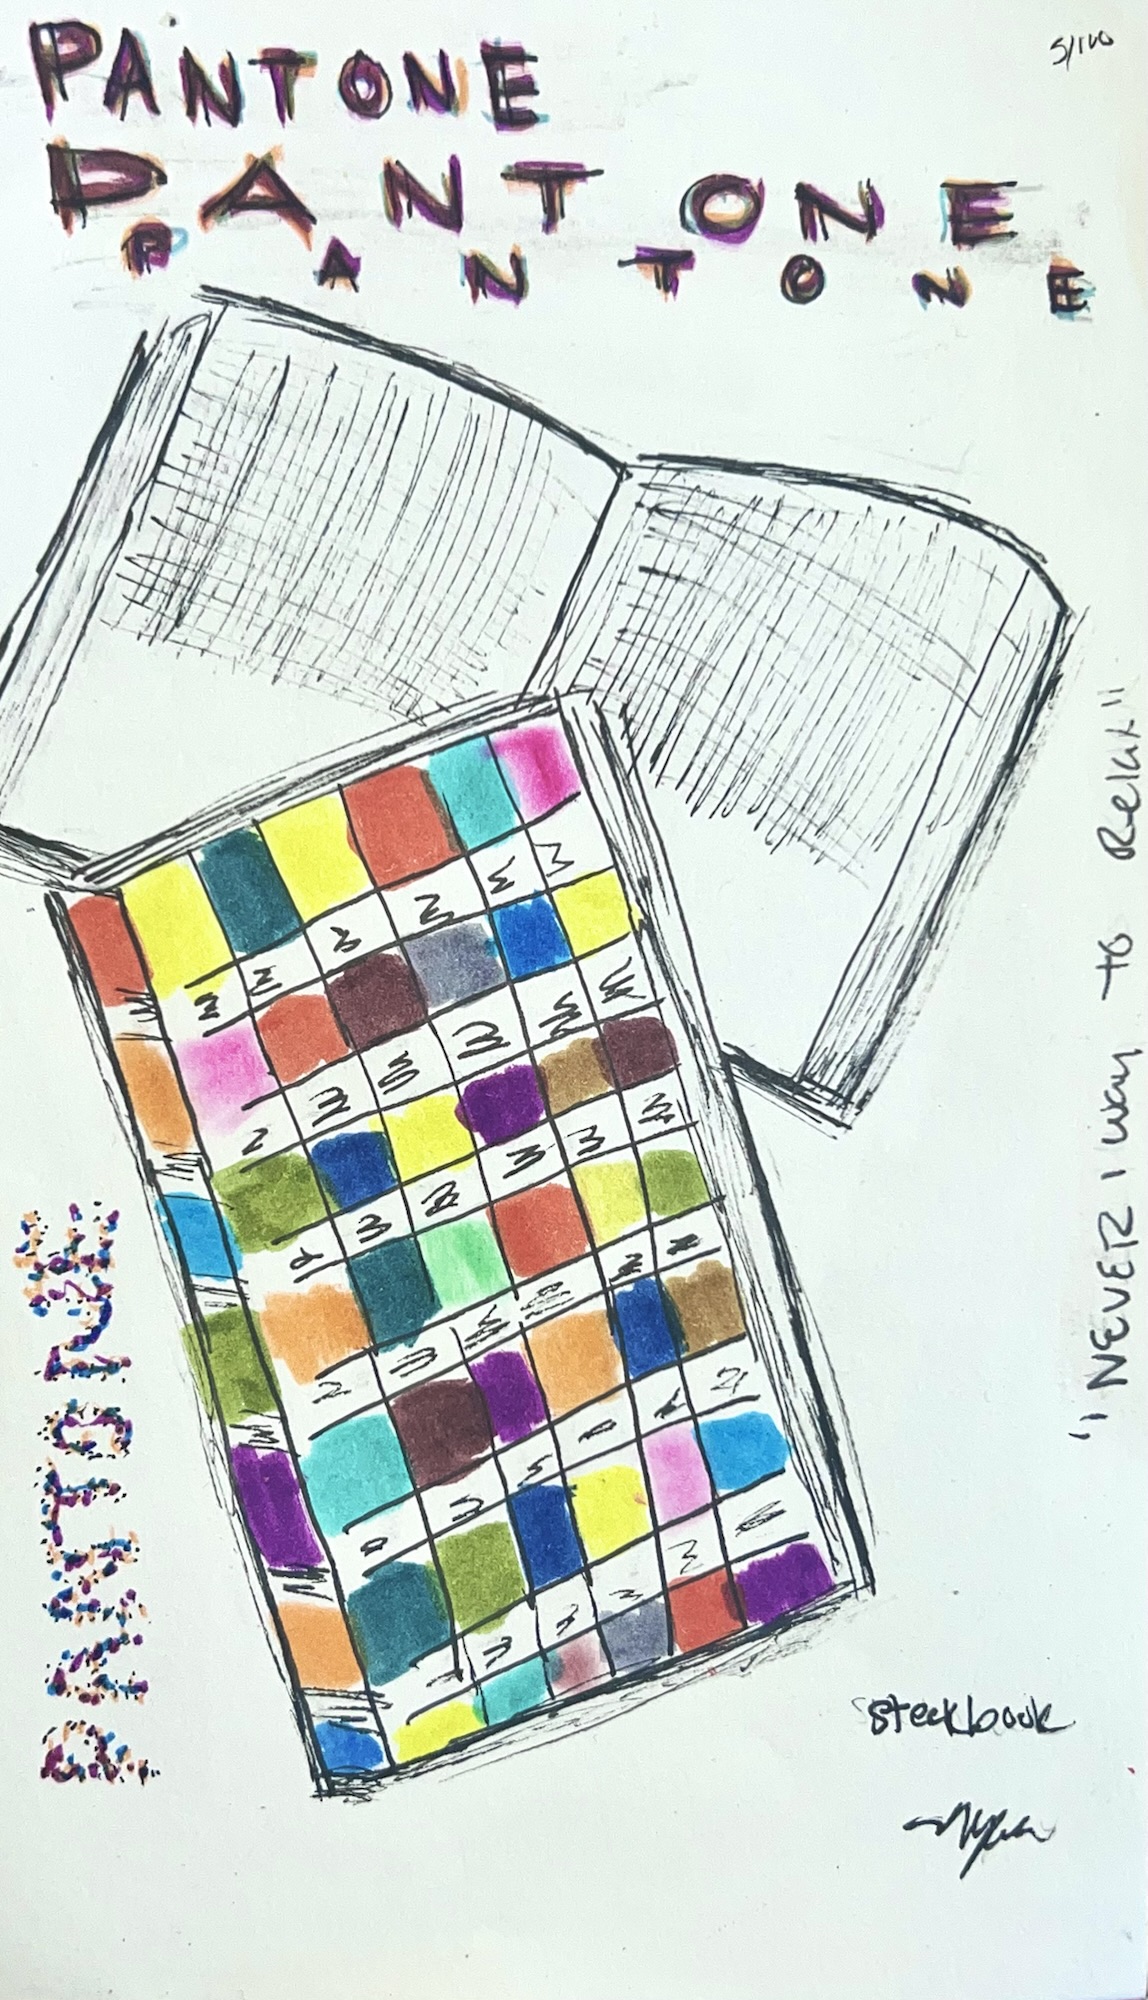 PANTONE
5/100
PANTONE
PANTONE
"NEVER 1 way to Relax"
PANTONE